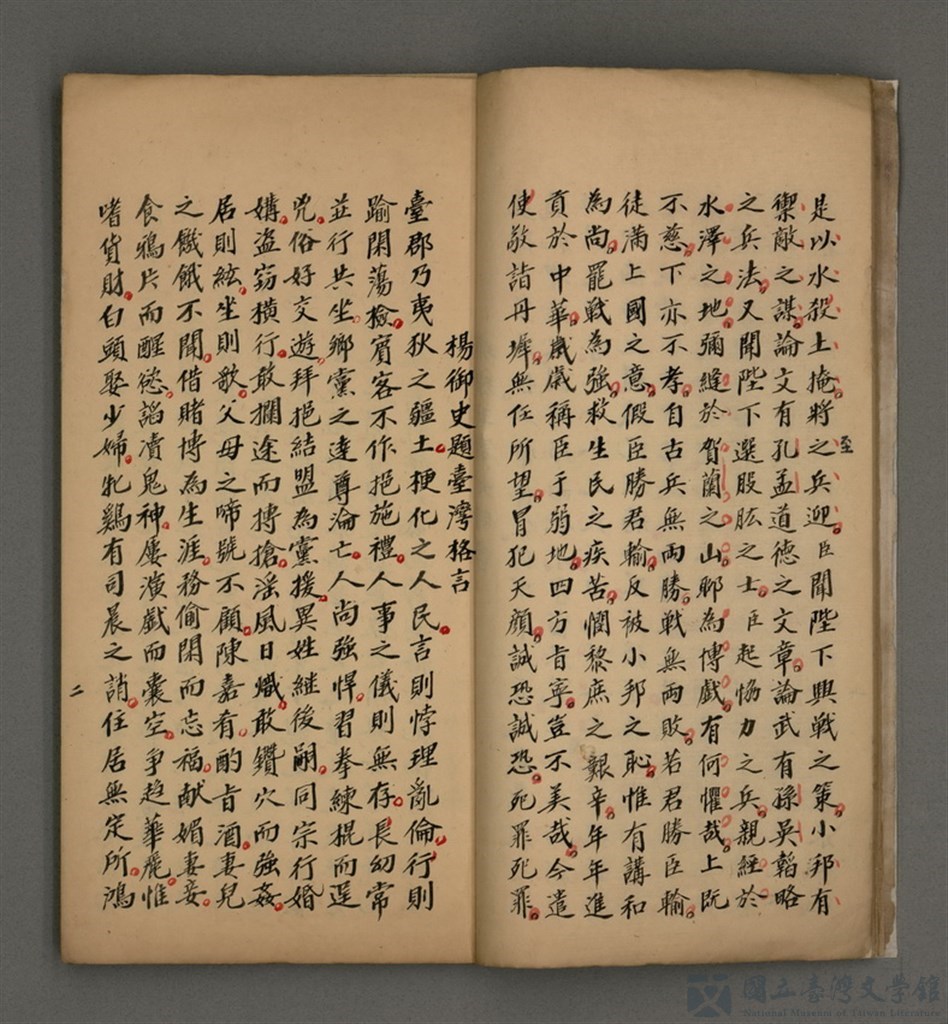 是以水殺土掩將之兵迎臣聞陛下興戰之策小邦有
至
禦敵之謀論文有孔孟道德之文章論武有孫吳韜略
之兵法又聞陛下選股肱之士臣起恊力之兵親經於
水澤之地彌縫於賀蘭之山聊為博戲有何懼哉上既
不慈下亦不孝自古兵無兩勝戰無兩敗若君勝臣輸
徒滿上國之意假臣勝君輸反被小邦之恥惟有講和
為尚罷戰為強救生民之疾苦憫黎庶之艱辛年年進
貢於中華歲歲稱臣于弱地四方皆寧豈不美哉今遣
使敬詣丹墀無任所望冒犯天顏誠恐誠恐死罪死罪
楊御史題臺灣格言
臺郡乃夷狄之疆土梗化之人民言則悖理亂倫行則
踰閑蕩檢賓客不作挹施禮人事之儀則無存長幼常
並行共坐鄉黨之達尊淪亡人尚強悍習拳練棍而逞
兇俗好交遊拜挹結盟為黨援異姓継後嗣同宗行婚
媾盜窃橫行敢攔途而摶搶滛風日熾敢鑽穴而強姦
居則絃坐則歌父母之啼號不顧陳嘉有酌旨酒妻兒
之饑餓不聞借賭博為生涯務偷閑而忘福献媚妻妾
食鴉片而醒慾謟瀆鬼神屢演戲而囊空爭趋華飛惟
嗜貨財白頭娶少婦牝鷄有司晨之誚住居無定所鴻
二
國立臺灣文學館
National Museum of Taiwan Literature